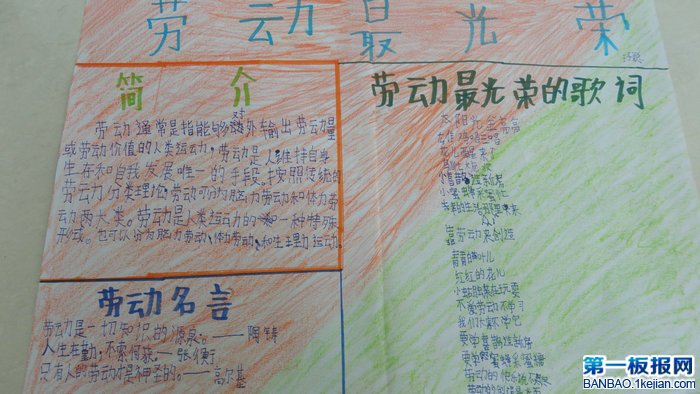 劳动最光荣
简介
劳动通常是指能够对外输出劳动量
或劳动价值的人类运动,劳动是人维持自身
生存和自我发展唯一的手段。按照传统的
劳动分类理论,劳动可分为脑力劳动和体力劳
动两大类。劳动是人类运动的一种特殊
形式。也可以分为脑力劳动、体力劳动、和生理力运动。
劳动名言
劳动是一切知识的源泉。——陶铸
人生在勤,不索何获——张衡
只有人的劳动才是神圣的。——高尔基
劳动最光荣的歌词
太阳光金亮亮
雄鸡唱三唱
花儿醒来了
小喜鹊造新房
小蜜蜂采蜜忙
幸福的生活从哪里来
靠劳动来创造
青青的叶儿
红红的花儿
小蝴蝶贪玩耍
不爱劳动不学习
我们大家不学它
要学喜鹊造新房
要学蜜蜂采蜜糖
劳动的快乐说不尽
劳动的创造最光荣
第一板报网
BANBAO.1kejian.com